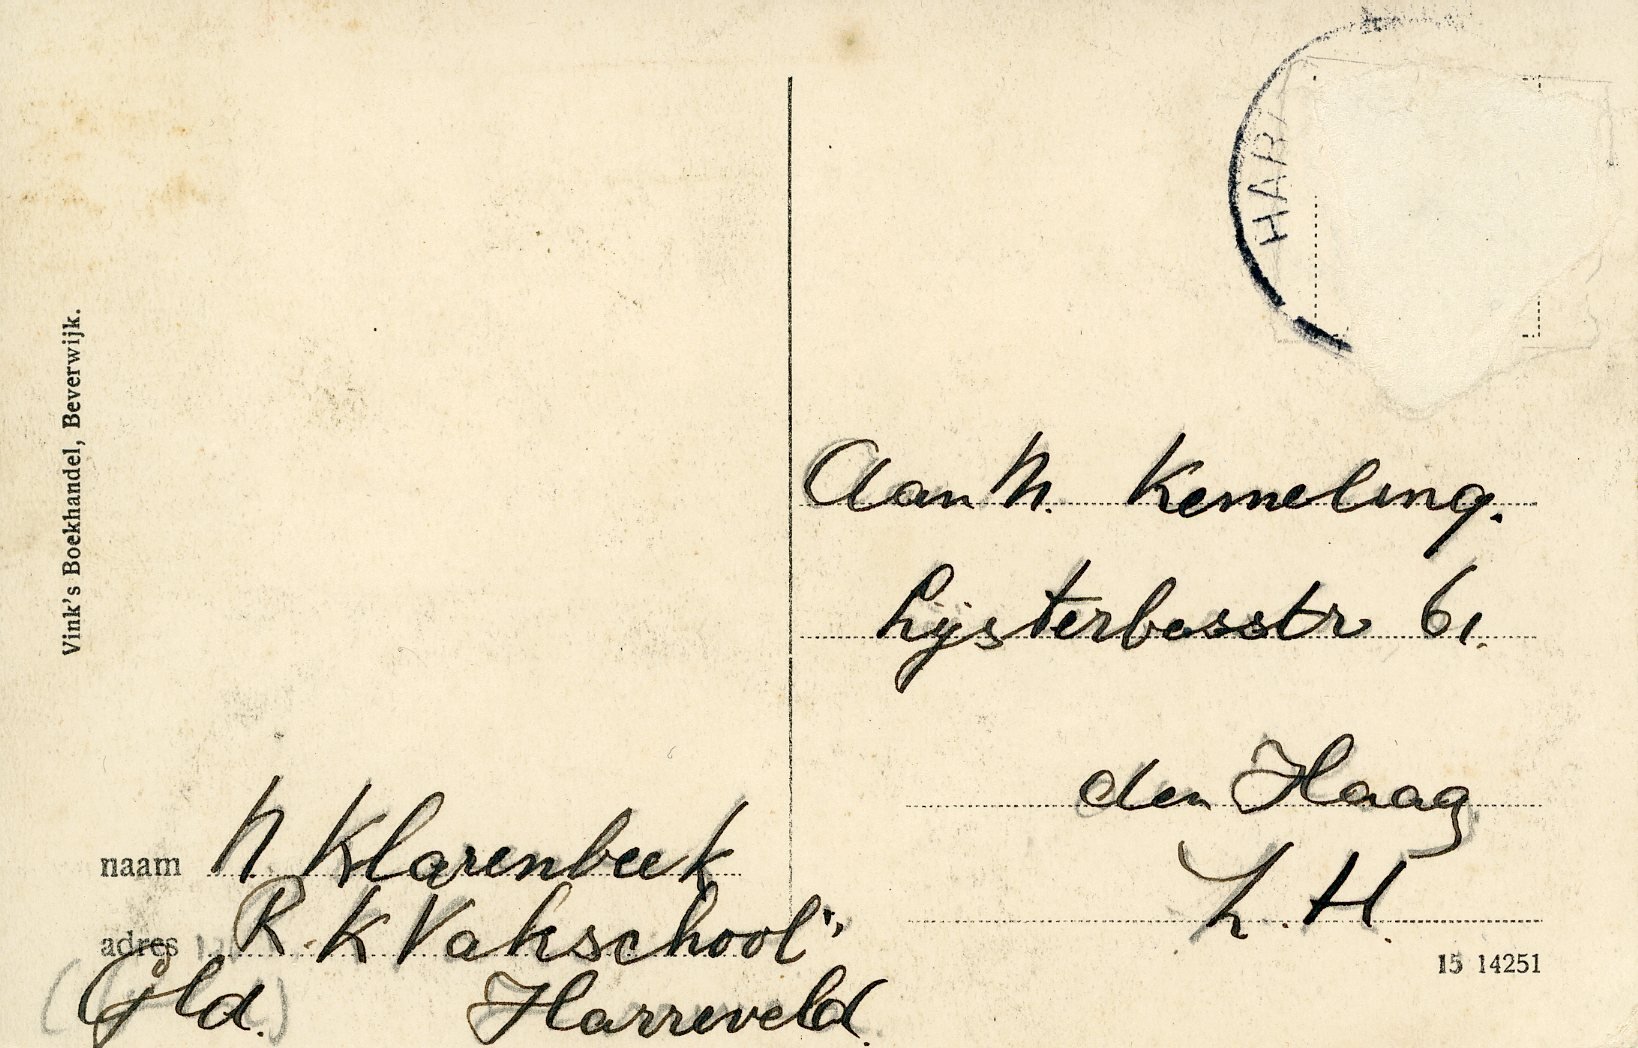 Vink's Boekhandel, Beverwijk.
HAR
Aan N. Kemeling.
Lijsterbesstr 61.
den Haag
Z. H.
naam N Klarenbeek
adres R. K Vakschool"
(Gld.) Harreveld.
15 14251